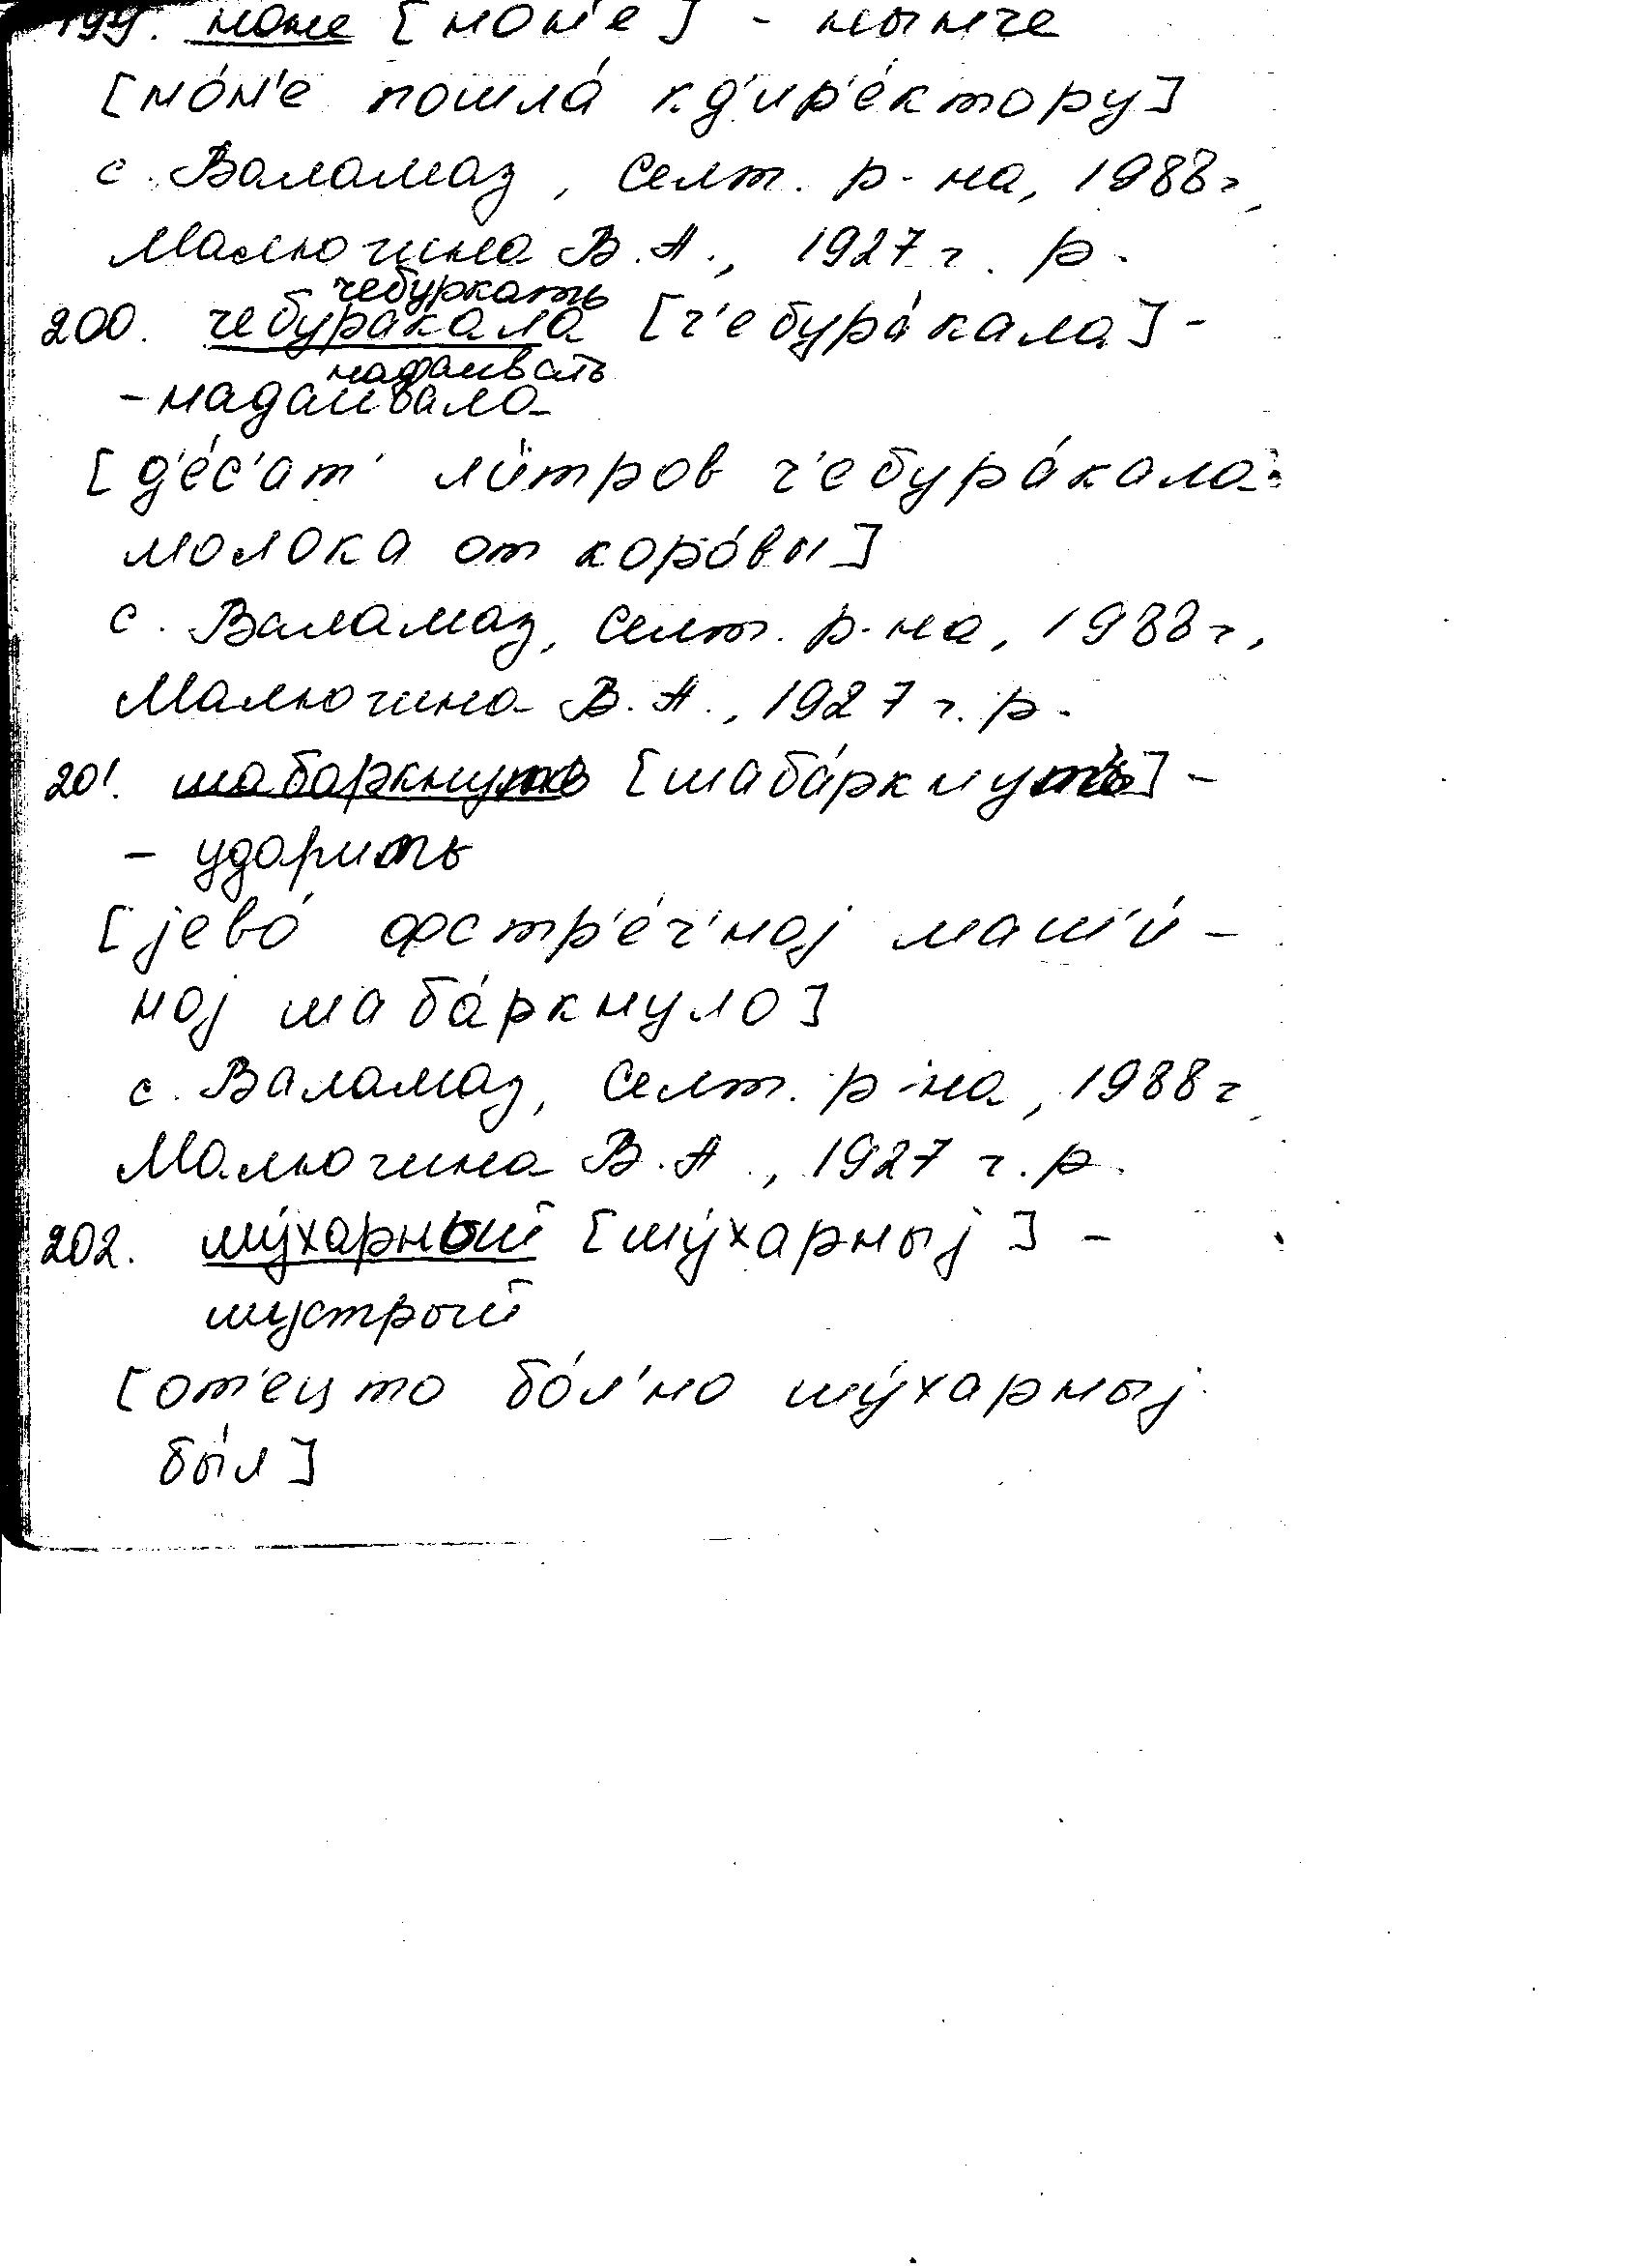 199. моне [мон'е] - нынче
[мо́н'е пошла́ кд'ир'е́ктору]
с. Валамаз, Селт. р-на, 1988г.,
Малючина В.А., 1927 г. р.
чебуркать
200. чебуракала [ч'ебура́кала] -
надаивать
- надаивала
[д'е́с'ат' ли́тров ч'ебура́кала
молока от коро́вы]
с. Валамаз, Селт. р-на, 1988г.,
Малючина В.А., 1927 г. р.
201. шабаркнуть [шаба́ркнут'] -
- ударить
[jево́ фстр'е́ч'ноj маш'и́-
ноj шаба́ркнуло]
с. Валамаз, Селт. р-на, 1988г.,
Малючина В.А., 1927 г. р.
202. шу́харный [шу́харныj] -
шустрый
[от'ецто бо́л'но шу́харныj
бы́л]